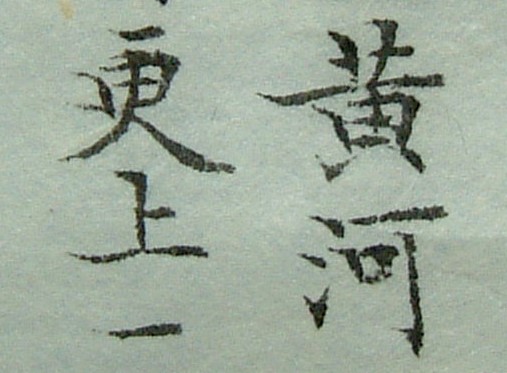 黄河
更上一